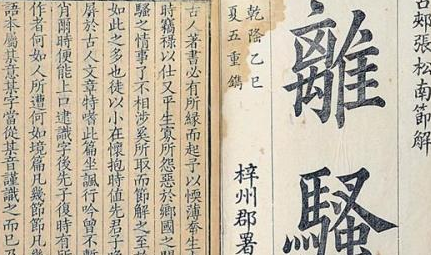 古郟張松南節解
離騷
乾隆乙巳
夏五重鐫
梓州郡署
古人著書必有所緣而起予以愞薄奉生
時竊祿以仕又平生寡所怨惡於鄉國之間
騷之情事了不相涉奚所取而節解之至於
如此之多也徒以小在懷抱時值先君子晚
屏於古人文章特嗜此篇坐諷行吟曾不暫
肖爾時便能上口逮識字後先子復時有所
作者何如人所遭何如境篇凡幾節節凡幾
語本屬某意某字當從某音謹識之而已乃